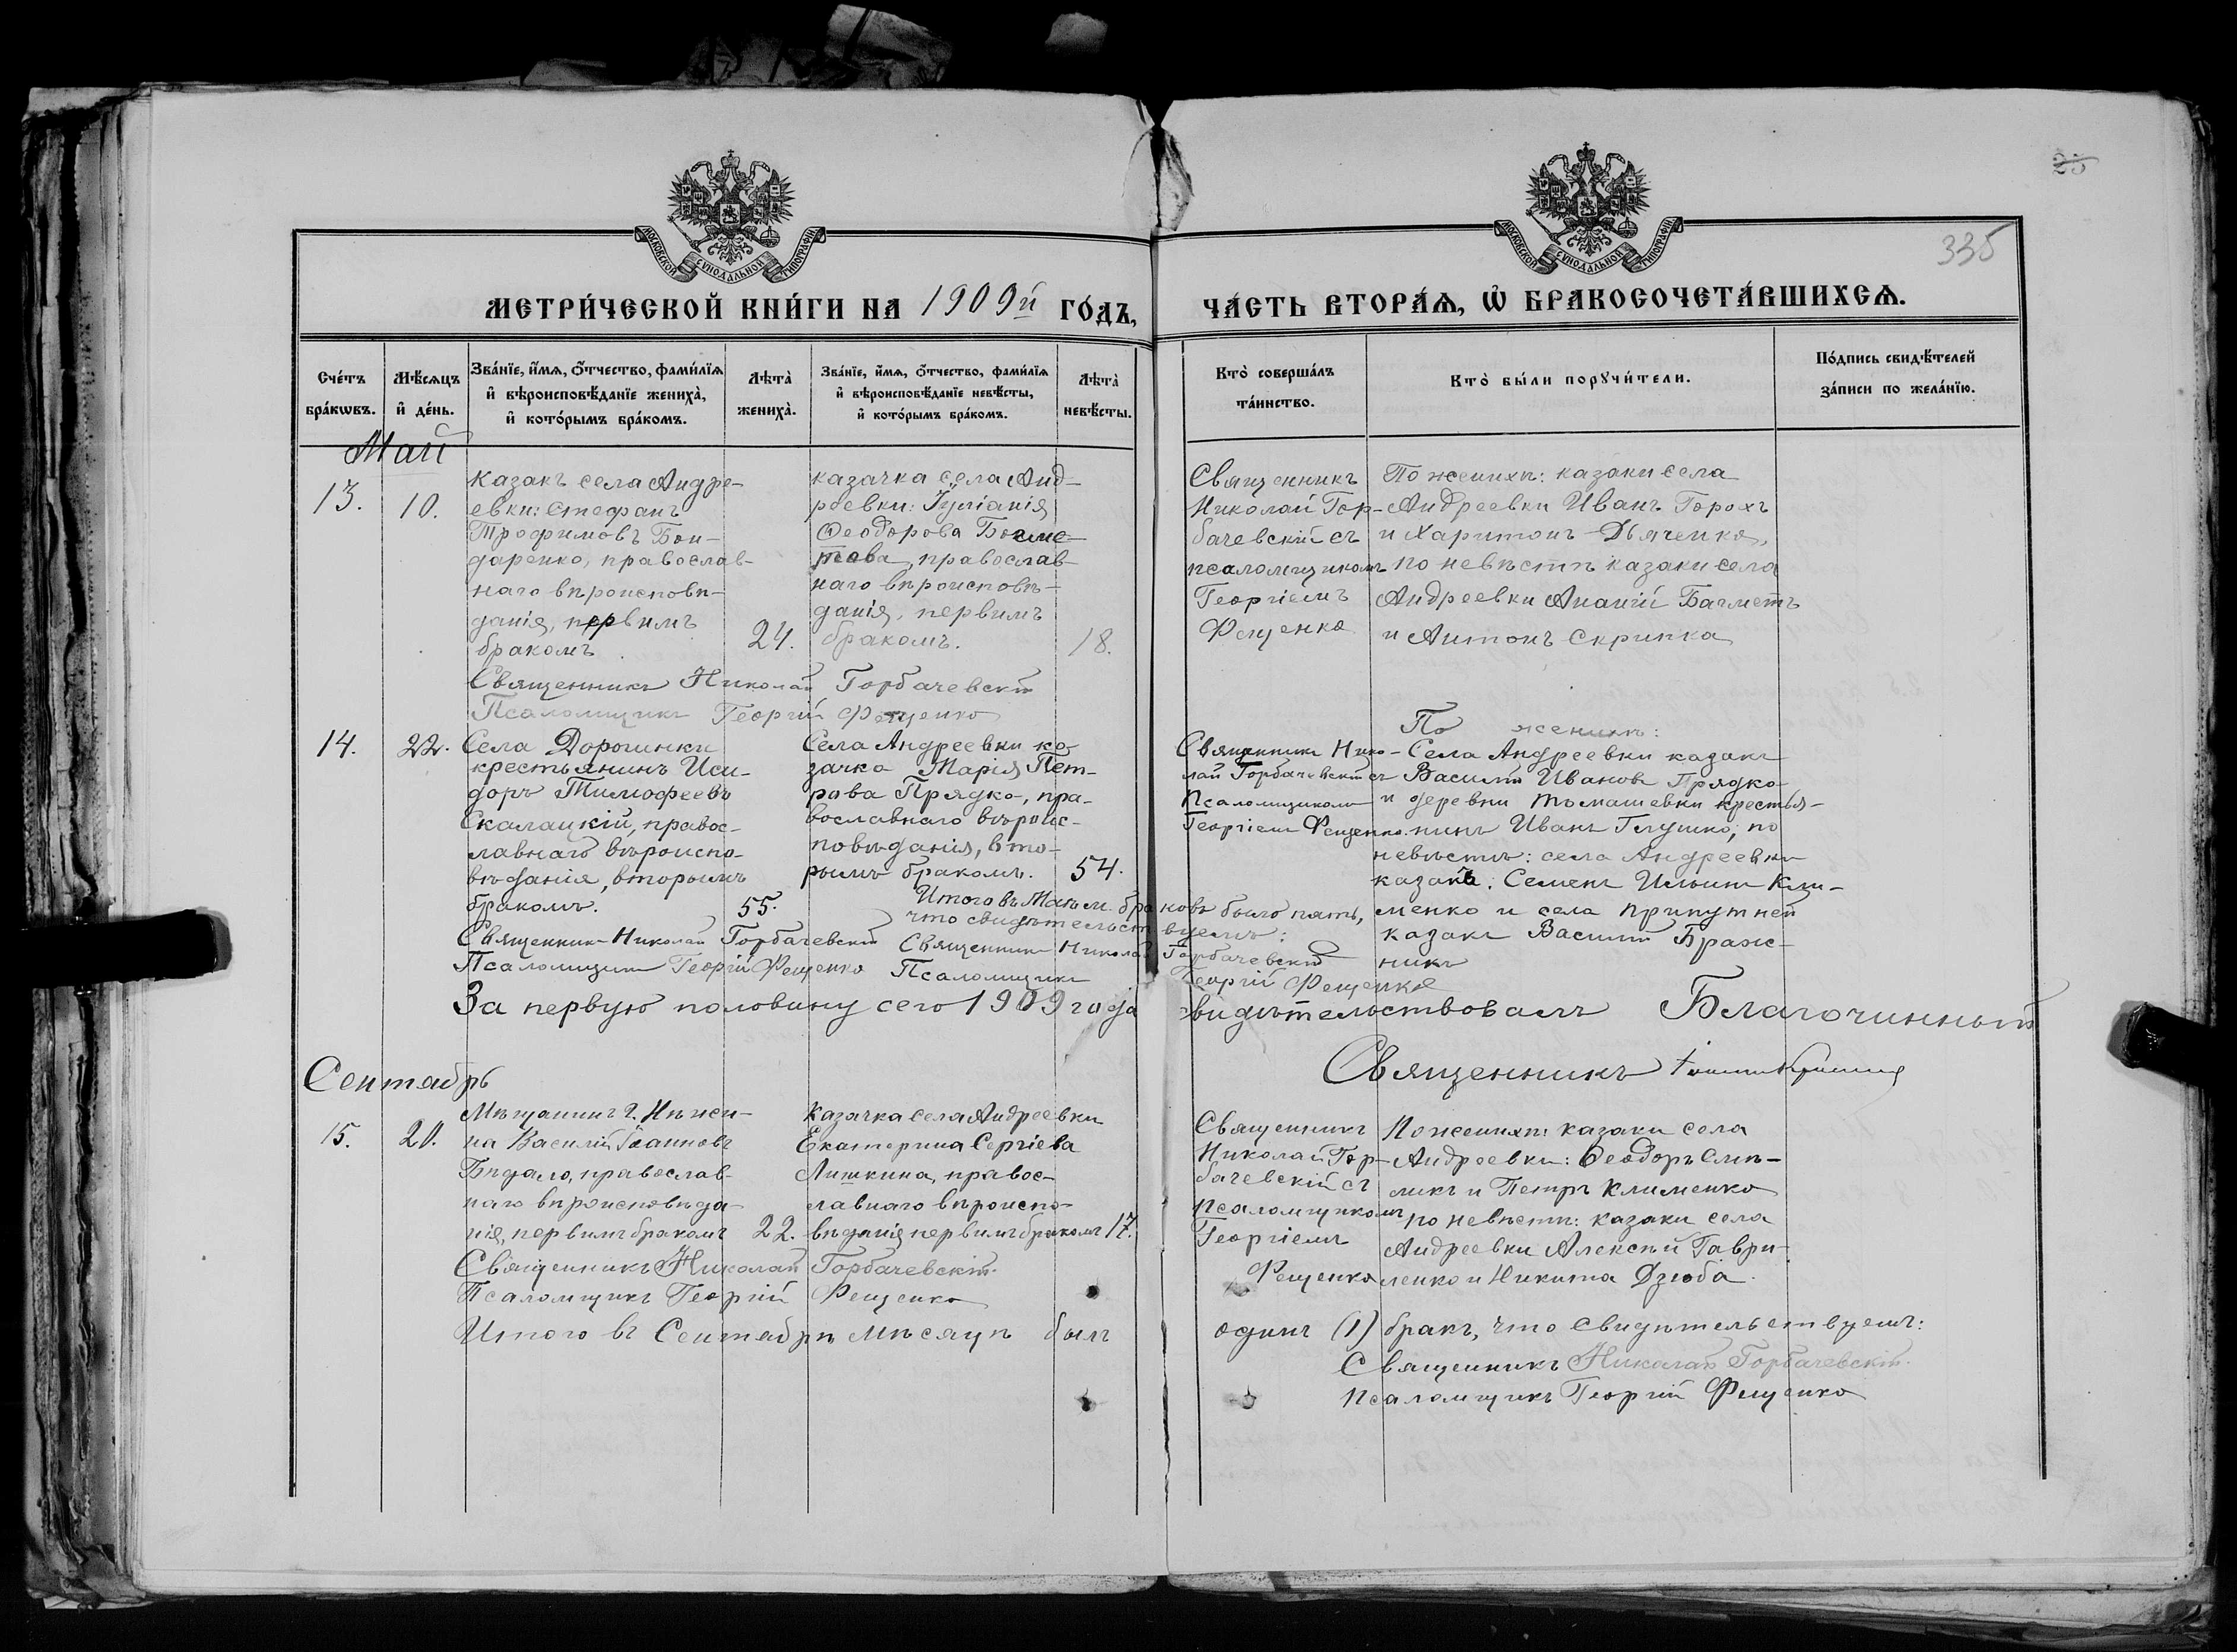 25
335
МОСКОВСКОЙ СѴНОДАЛЬНОЙ ТИПОГРАФІИ
МОСКОВСКОЙ СѴНОДАЛЬНОЙ ТИПОГРАФІИ
МЕТРИ́ЧЕСКОЙ КНИ́ГИ НА 1909й ГО́ДЪ,
ЧА́СТЬ ВТОРА́Ѧ, Ѽ БРАКОСОЧЕТА́ВШИХСѦ.
Сче́тъ
бра́кѡвъ.
Мѣ́сѧцъ
и҆ де́нь.
Зва́нїе, и҆́мѧ, ѻ҆́тчество, фамѝлїѧ
и҆ вѣроисповѣ́данїе жениха̀,
и҆ кото́рымъ бра́комъ.
Лѣта̀
жениха̀.
Зва́нїе, и҆́мѧ, ѻ҆́тчество, фамѝлїѧ
и҆ вѣроисповѣ́данїе невѣ́сты,
и҆ кото́рымъ бра́комъ.
Лѣта̀
невѣ́сты.
Кто̀ соверша́лъ
та́инство.
Кто̀ бы́ли порꙋчи́тели.
По́дпись свидѣ́телей
за́писи по жела́нїю.
Май
13.
10.
Казакъ села Андре-
евки: Стефанъ
Трофимовъ Бон-
даренко, православ-
наго вѣроисповѣ-
данія, первымъ
бракомъ.
24.
казачка села Анд-
реевки: Іуліанія
Ѳеодорова
православ-
наго вѣроисповѣ-
данія, первымъ
бракомъ.
18.
Священникъ
Николай Гор-
бачевскій съ
псаломщикомъ
Георгіемъ
Фещенко
По женихѣ: казаки села
Андреевки Иванъ Горохъ
и Харитонъ Дьяченко,
по невѣстѣ казаки села
Андреевки Ананій Бахметъ
и Антонъ Скрипка
Священникъ Николай Горбачевскій
Псаломщикъ Георгій Фещенко
14.
22.
Села Дорогинки
крестьянинъ Иси-
доръ Тимофеевъ
Скалацкій, правос-
лавнаго вѣроиспо-
вѣданія, вторымъ
бракомъ.
55.
Села Андреевки ка-
зачка Марія Пет-
рова Прядко, пра-
вославнаго вѣроис-
повѣданія, вто-
рымъ бракомъ.
54.
Священникъ Нико-
лай Горбачевскій съ
Псаломщикомъ
Георгіемъ Фещенко.
По женихѣ:
Села Андреевки казакъ
Василій Ивановъ Прядко
и деревни Томашевки крестья-
нинъ Иванъ Глушко; по
невѣстѣ: села Андреевки
казакъ. Семенъ Ильинъ Кли-
менко и села Припутней
казакъ Василій Браж-
никъ
Итого въ Маѣ м. браковъ было пять,
что свидѣтельствуемъ:
Священникъ Николай Горбачевскій
Псаломщикъ Георгій Фещенко
Священникъ Николай Горбачевскій
Псаломщикъ Георгій Фещенко
За первую половину сего 1909 года свидѣтельствовалъ Благочинный
Священникъ
Сентябрь
15.
20.
Мѣщанинъ г. Нѣжи-
на Василій Іоанновъ
Бѣдало, православ-
наго вѣроисповѣда-
нія, первымъ бракомъ
22.
Казачка села Андреевки
Екатерина Сергіева
Лишкина, правос-
лавнаго вѣроиспо-
вѣданія первымъ бракомъ
17.
Священникъ
Николай Гор-
бачевскій съ
псаломщикомъ
Георгіемъ
Фещенко
По женихѣ: казаки села
Андреевки: Ѳеодоръ Смѣ-
ликъ и Петръ Клименко
по невѣстѣ: казаки села
Андреевки Алексѣй Гаври-
ленко и Никита Дзюба.
Священникъ Николай Горбачевскій
Псаломщикъ Георгій Фещенко
Итого въ Сентябрѣ мѣсяцѣ былъ одинъ (1) бракъ, что свидѣтельствуемъ:
Священникъ Николай Горбачевскій.
Псаломщикъ Георгій Фещенко